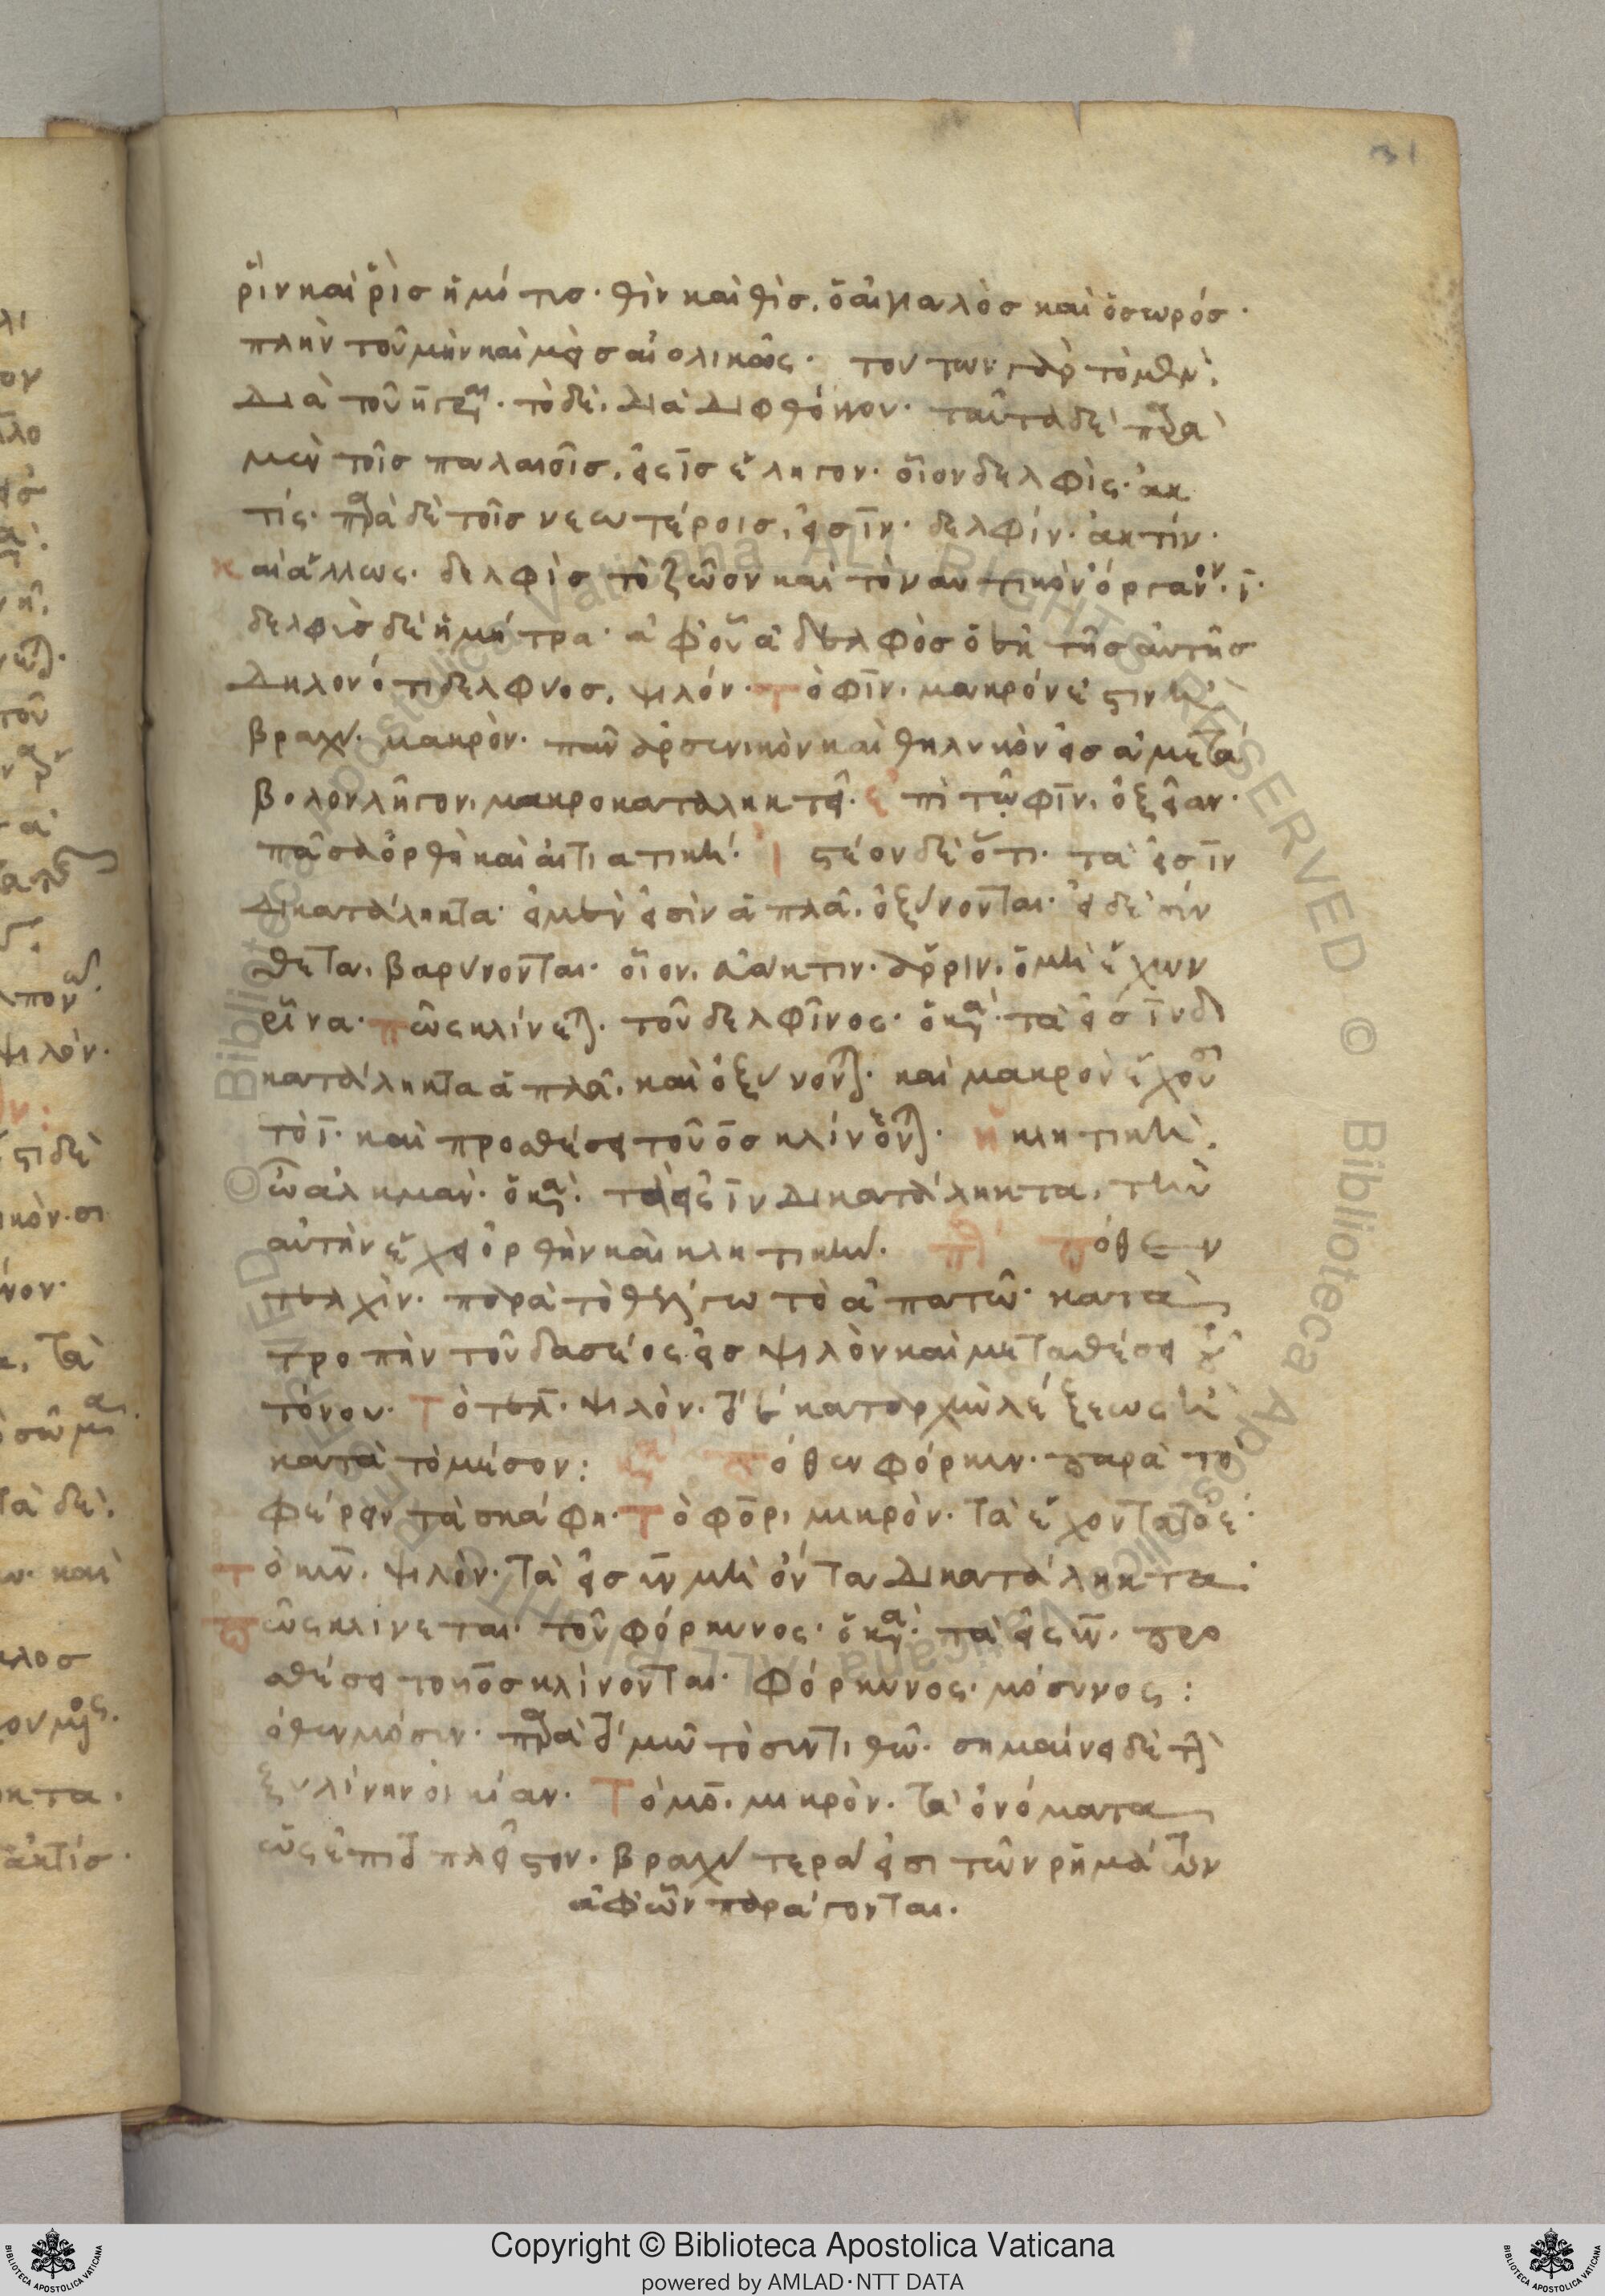 31
ῥὶν καὶ ῥὶς ἡ μύτις· θὶν καὶ θὶς, ὁ αἰγιαλὸς καὶ ὁ σωρός·
πλὴν τοῦ μὴν καὶ μεὶς αἰολικῶς· τούτων γὰρ τὸ μὲν,
διὰ τοῦ η γρ· τὸ δὲ, διὰ διφθόγγου· ταῦτα δὲ παρὰ
μὲν τοῖς παλαιοῖς, εἰς ις ἔληγον· οἷον δελφίς· ἀκ
τίς· παρὰ δὲ τοῖς νεωτέροις, εἰς ιν· δελφίν· ἀκτίν·
καὶ ἄλλως· δελφὶς τὸ ζῶον καὶ τὸ ναυτικὸν ὄργανον· ι·
δελφὺς δὲ ἡ μήτρα· ἀφ' οὗ ἀδελφὸς ὁ ἐκ τῆς αὐτῆς
δηλονότι δελφύος, ψιλόν· τὸ φιν, μακρόν ἐστιν ἢ
βραχύ· μακρόν· πᾶν ἀρσενικὸν καὶ θηλυκὸν εἰς ἀμετά
βολον λῆγον, μακροκαταληκτεῖ· ἐπὶ τῷ φιν, ὀξεῖαν·
πᾶσα ὀρθὴ καὶ αἰτιατική· ἰστέον δὲ ὅτι τὰ εἰς ιν
δικατάληκτα· εἰ μὲν εἰσὶν ἁπλᾶ, ὀξύνονται· εἰ δὲ σύν
θετα, βαρύνονται· οἷον, ἄακτιν· ἄρριν, ὁ μὴ ἔχων
ῥῖνα· πῶς κλίνεται· τοῦ δελφῖνος· ὁ κα· τὰ εἰς ιν δι
κατάληκτα ἁπλᾶ, καὶ ὀξύνονται· καὶ μακρὸν ἔχου
τὸ ι· καὶ προσθέσει τοῦ ος κλίνονται· ἡ κλητικὴ,
ὦ ἀλκμάν· ὁ κα· τὰ εἰς ιν δικατάληκτα, τὴν
αὐτὴν ἔχει ὀρθὴν καὶ κλητικήν· πόθεν
τελχίν· παρὰ τὸ θέλγω τὸ ἀπατῶ· κατὰ
τροπὴν τοῦ δασέος εἰς ψιλὸν καὶ μεταθέσει
τόνου· τὸ τελ· ψιλόν· κατ' ἀρχὴν λέξεως ἢ
κατὰ τὸ μέσον: πόθεν φόρκυν· παρὰ τὸ
φέρειν τὰ σκάφη· τὸ φορ, μικρόν· τὰ ἔχοντα τὸ ε·
τὸ κυν, ψιλόν· τὰ εἰς υν μὴ ὄντα δικατάληκτα·
πῶς κλίνεται· τοῦ φόρκυνος· ὁ κα· τὰ εἰς υν· προ
σθέσει τοῦ ος κλίνονται· φόρκυνος· μόσυνος:
ὅθεν μόσυν· παρὰ τὸ μῶ τὸ συντιθῶ· σημαίνει δὲ τὴν
ξυλίνην οἰκίαν· τὸ μο, μικρόν· τὰ ὀνόματα
ὡς ἐπὶ τὸ πλεῖστον· βραχύτερα εἰσι τῶν ῥημάτων
ἀφ' ὧν παράγονται·
Copyright © Biblioteca Apostolica Vaticana
powered by AMLAD·NTT DATA